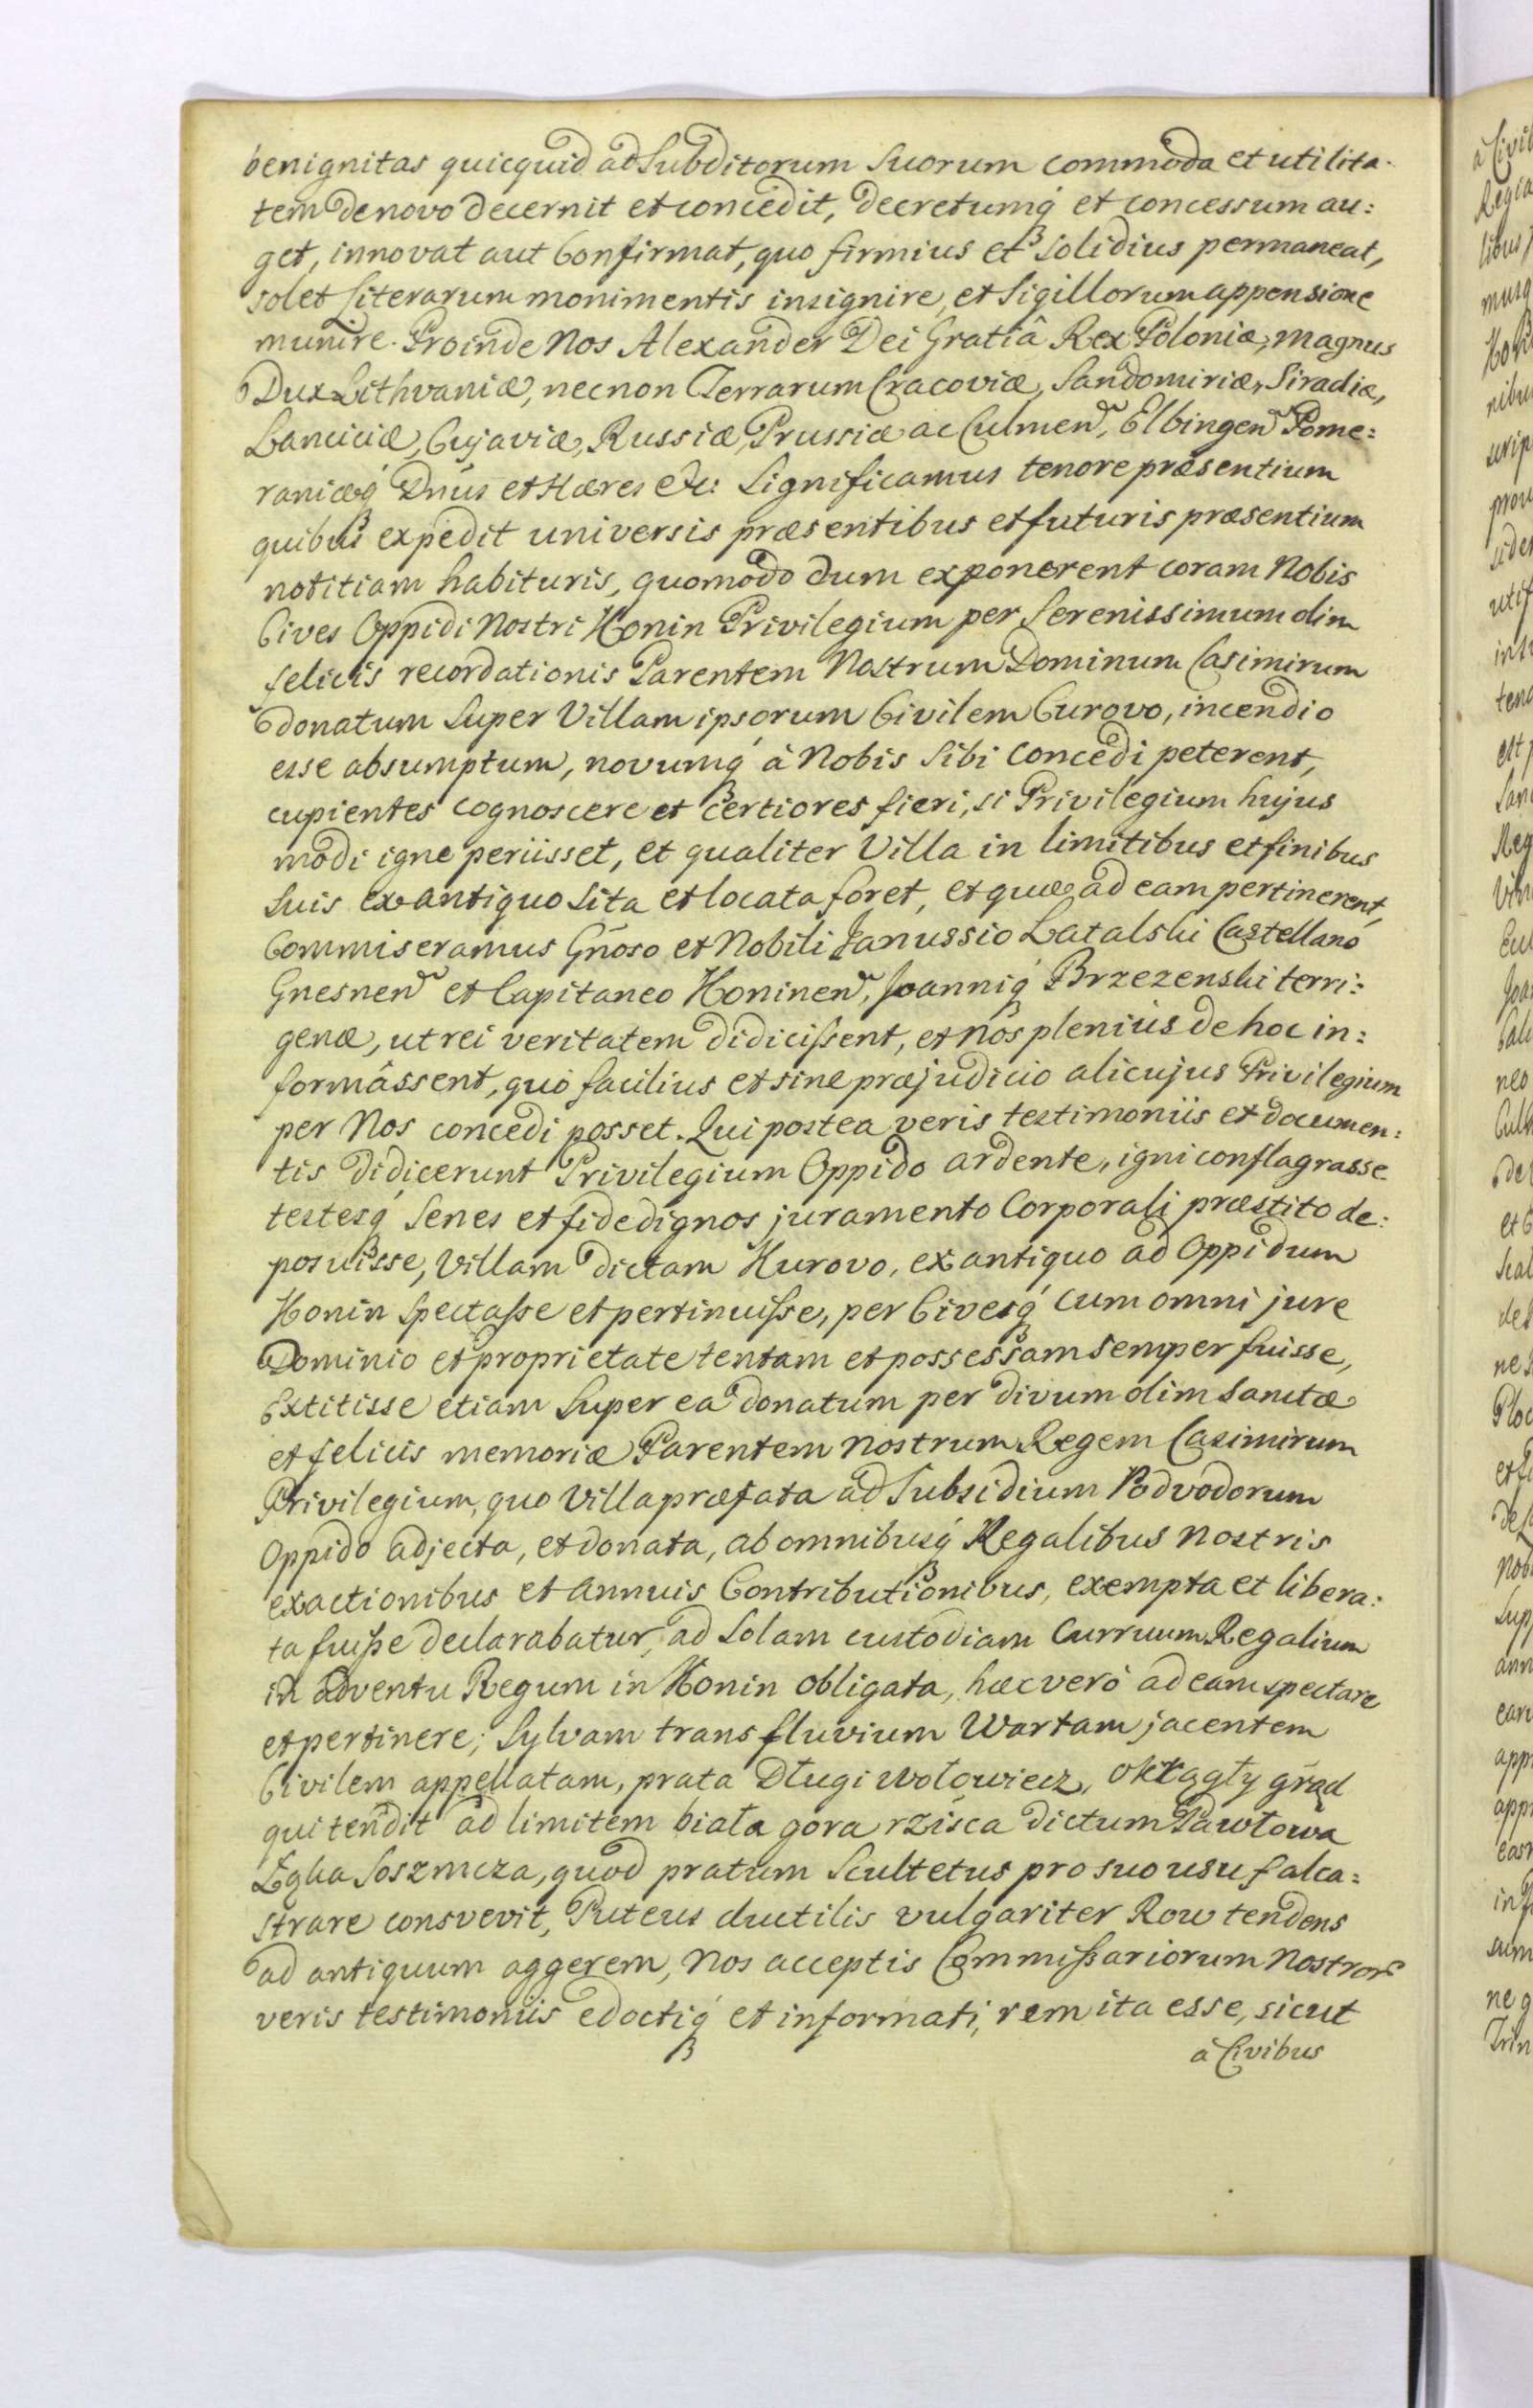 benignitas quicquid ad Subditorum Suorum commoda et utilita-
tem de novo decernit et concedit, decretumq́ et concessum au:
get, innovat aut Confirmat, quo firmius et solidius permaneat,
solet Literarum monimentis insignire, et Sigillorum appensione
munire. Proinde Nos Alexander Dei Gratiâ Rex Poloniæ, magnus
Dux Lithvaniæ, necnon Terrarum Cracoviæ, Sandomiriæ, Siradiæ,
Lanciciæ, Cujaviæ, Russiæ, Prussiæ ac Culmen̄, Elbingen̄ Pome:
raniæq́ Dnus et Hæres &c: Significamus tenore præsentium
quibus expedit universis præsentibus et futuris præsentium
notitiam habituris, quomodo dum exponerent coram Nobis
Cives Oppidi Nostri Konin Privilegium per Serenissimum olim
felicis recordationis Parentem Nostrum Dominum Casimirum
donatum Super Villam ipsorum Civilem Curovo, incendio
esse absumptum, novumq́ à Nobis Sibi Concedi peterent,
cupientes cognoscere et certiores fieri, si Privilegium hujus
modi igne periisset, et qualiter Villa in limitibus et finibus
Suis ex antiquo Sita et locata foret, et quæ ad eam pertinerent,
Commiseramus Gñoso et Nobili Janussio Latalski Castellano
Gnesnen̄ et Capitaneo Koninen̄, Joanniq́ Brzezenski terri:
genæ, ut rei veritatem didicissent, et nos plenius de hoc in:
formâssent, quò facilius et sine præjudicio alicujus Privilegium
per Nos concedi posset. Qui postea veris testimoniis et documen:
tis didicerunt Privilegium Oppido ardente, igni conflagrasse
testesq́ Senes et fide dignos juramento Corporali præstito de:
posuisse, Villam dictam Kurovo, ex antiquo ad Oppidum
Konin Spectasse et pertinuisse, per Civesq́ cum omni jure
Dominio et proprietate tentam et possessam semper fuisse,
Extitisse etiam Super ea donatum per divum olim Sanctæ
et felicis memoriæ Parentem nostrum Regem Casimirum
Privilegium, quo Villa præfata ad Subsidium Podvodorum
Oppido adjecta, et donata, ab omnibusq́ Regalibus nostris
exactionibus et Annuis Contributionibus, exempta et libera:
ta fuisse declarabatur, ad Solam custodiam Curruum Regalium
in adventu Regum in Konin obligata, hæc verò ad eam spectare
et pertinere; Sylvam trans fluvium Wartam jacentem
Civilem appellatam, prata Długi wołowiecz, okrągły grąd
qui tendit ad limitem biała gora rzisca dictum Pawłowa
Ląka Soszmcza, quod pratum Scultetus pro suo usu falca:
strare consvevit, Puteus ductilis vulgariter Row tendens
ad antiquum aggerem, Nos acceptis Commissariorum Nostror̄
veris testimoniis edoctiq́ et informati, rem ita esse, sicut
à Civibus